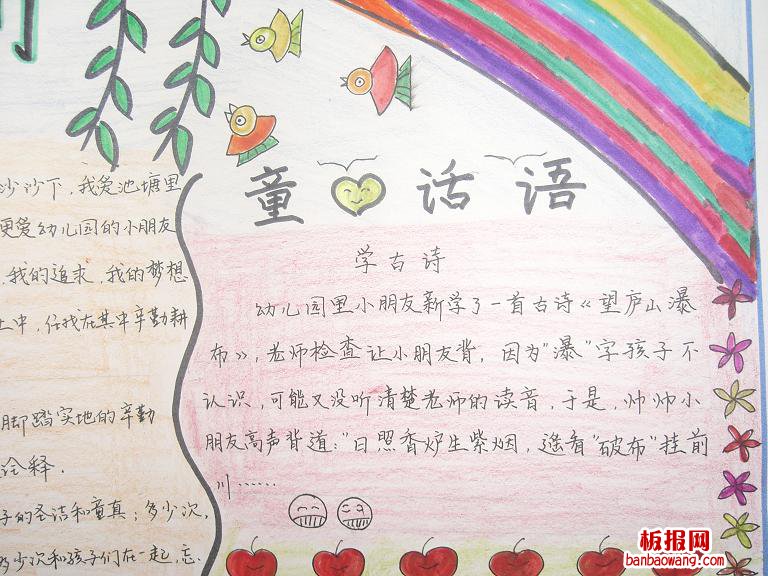 沙沙下，我爱池塘里
更爱幼儿园的小朋友
，我的追求，我的梦想
土中，任我在其中辛勤耕
脚踏实地的辛勤
诠释．
子的圣洁和童真；多少次，
多少次和孩子们在一起，忘
童 话 语
学古诗
幼儿园里小朋友新学了一首古诗《望庐山瀑
布》，老师检查让小朋友背，因为“瀑”字孩子不
认识，可能又没听清楚老师的读音，于是，帅帅小
朋友高声背道：“日照香炉生紫烟，遥看“破布”挂前
川……
板报网
banbaowang.com